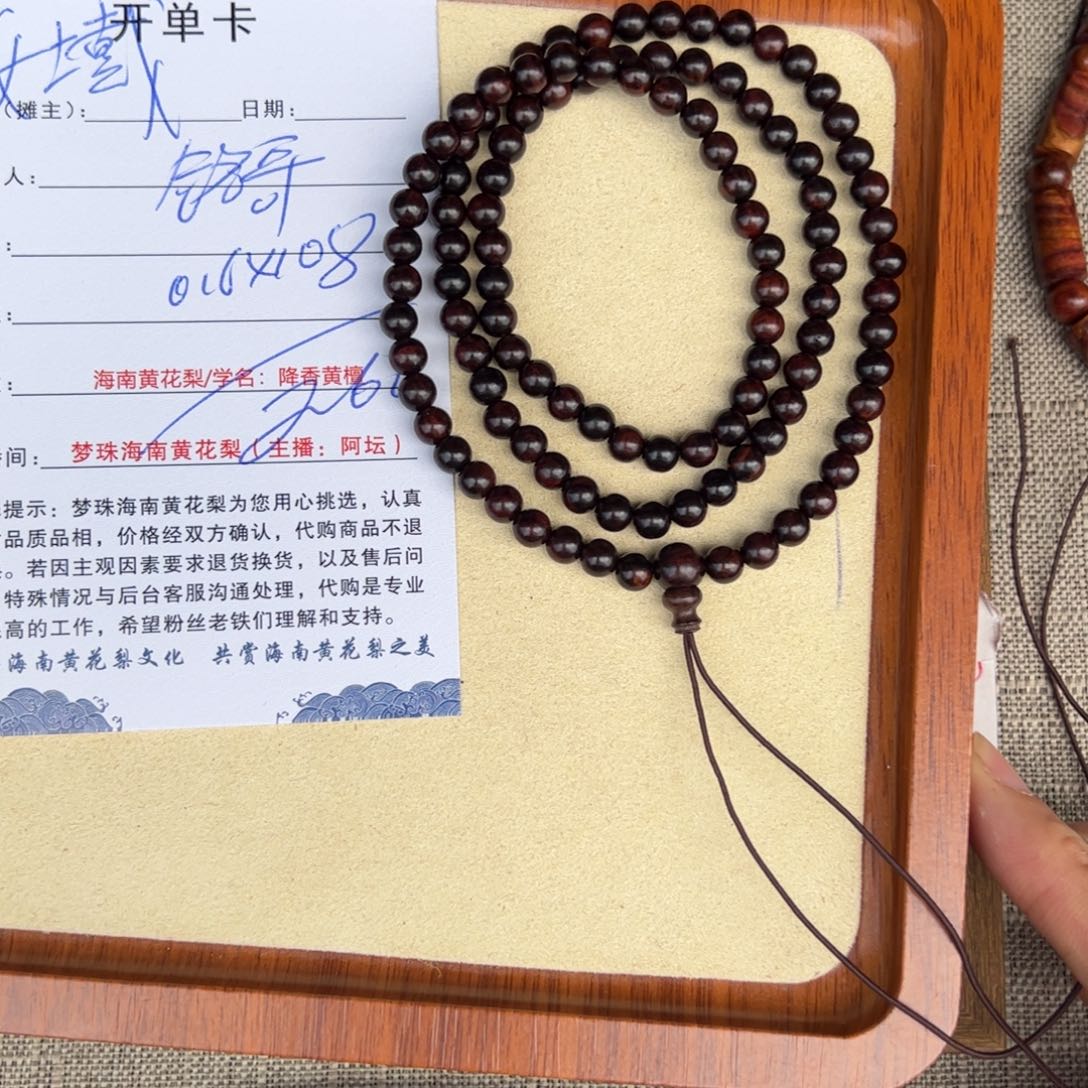 开单卡
（摊主）：
日期：
人：
铭哥
：
0.6X108
：
：海南黄花梨/学名：降香黄檀
间：梦珠海南黄花梨（主播：阿坛）
提示：梦珠海南黄花梨为您用心挑选，认真
品质品相，价格经双方确认，代购商品不退
。若因主观因素要求退货换货，以及售后问
特殊情况与后台客服沟通处理，代购是专业
高的工作，希望粉丝老铁们理解和支持。
海南黄花梨文化 共赏海南黄花梨之美